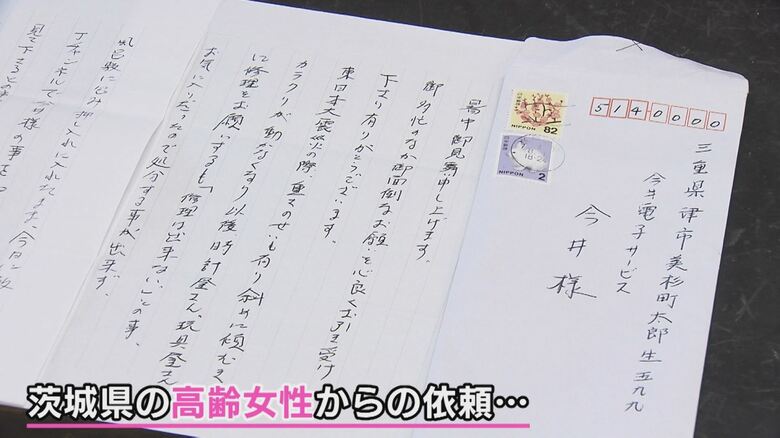 5140000
三重県津市美杉町太郎生五九九
今井電子サービス
今井様
NIPPON 82
NIPPON 2
暑中御見舞申し上げます。
御多忙のなか御面倒なお願いを心良くお引き受け
下さり有りがとうございます。
東日本大震災の際、重さのせいも有り斜めに傾むき
カラクリが動かなくなり以後時計屋さん、玩具屋さん
に修理をお願いするも「修理は出来ない」との事、
お気に入りだったので処分する事が出来ず、
風呂敷に包み押し入れに入れたまま、今日に
Jチャンネルで今井様の事
見て下さるとの
茨城県の高齢女性からの依頼…